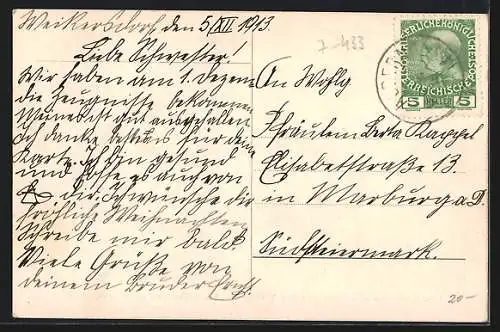 Weikersdorf, den 5/XII 1913.
7-433
Liebe Schwester!
Wir haben am 1. Dezemb
die Zeugnisse bekommen
Meines ist gut ausgefallen
Ich danke bestens für deine
Karte. Ich bin gesund
und hoffe es auch von
dir. Ich wünsche dir
fröhliche Weihnachten
Schreibe mir bald
Viele Grüße von
deinem Bruder Ernst.
An Wohlg
Fräulein Berta Kappel
Elisabetstraße 13.
in Marburg a. D.
Südsteiermark.
20-
5 HELLER 5